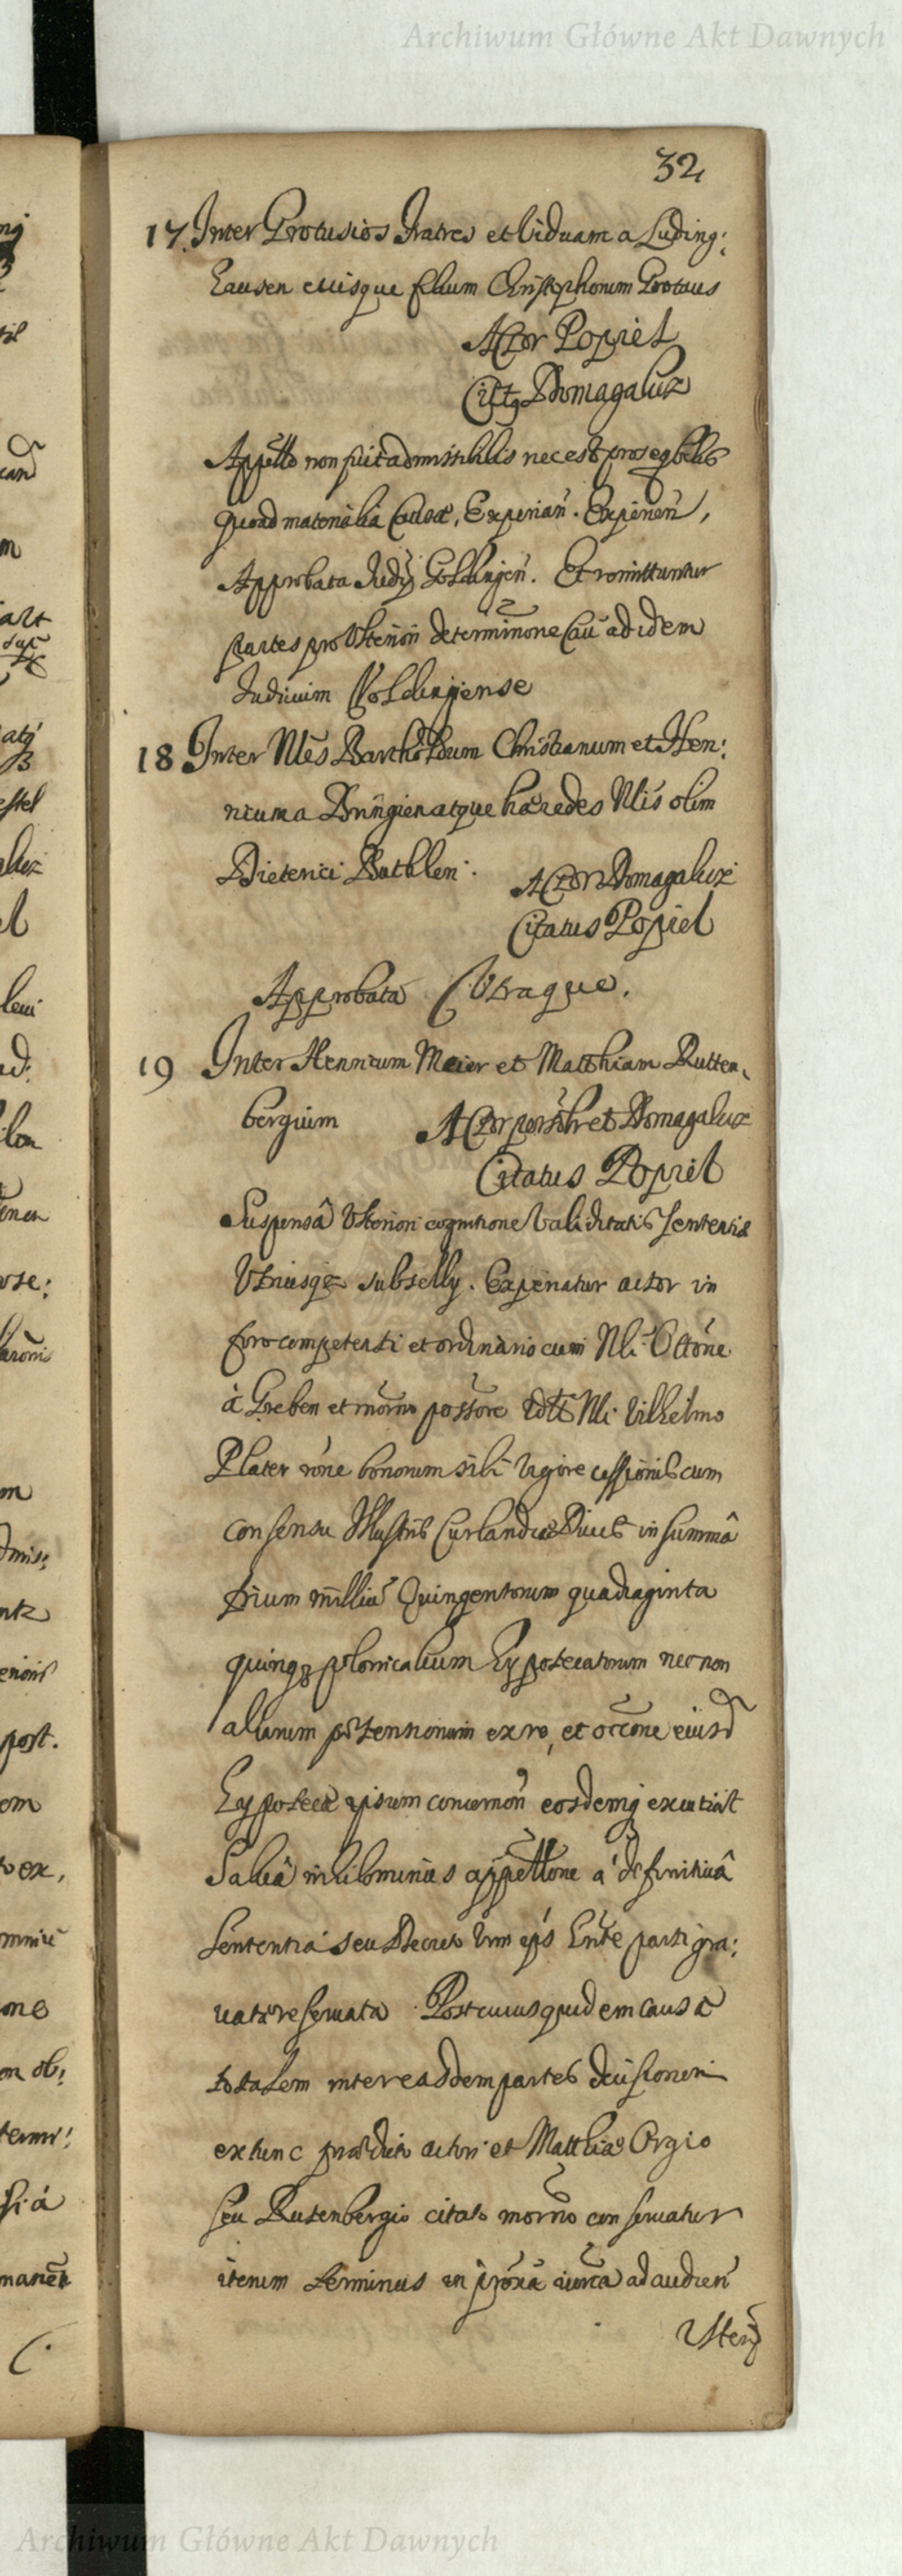 Archiwum Główne Akt Dawnych
32
17. Inter Protusios Fratres et Viduam a Luding:
hausen eiusque filium Christophorum Protus
Actor Popiel
Citatq Domagalicz
Appello non fuit admissibilis nec est proseqbilis
quoad materialia Causæ, Experian. Experien,
Approbata Judÿ Goldingen. Et remittuntur
partes pro Vlteriori determinone Cau ad idem
Iudicium Goldingense
18 Inter Nles Bartholdum Christianum et Hen:
ricum a Bringien atque hæredes Nlis olim
Dieterici Buthlen: Actor Domagalicz
Citatus Popiel
Approbata Utraque.
19 Inter Henricum Meier et Matthiam Rutten,
bergium Actor personlr et Domagalicz
Citatus Popiel
Suspensâ Vlteriori cognitione Validitatis Sententiæ
Vtriusqz subsellÿ. Experiatur actor in
foro competenti et ordinario cum Nli Ottone
à Greben et morno possore Nli Vilhelmo
Plater rone bonorum sibi Vigore cessionis cum
consensu Illustris Curlandiæ Ducis in summâ
trium milliu Quingentorum quadraginta
quinqz polonicalium Hypotecatorum nec non
aliarum prætensionum ex re, et occone eiusd
Hypotecæ ipsum concernen eosdemq excutiat
Salvâ nihilominus appellone à definitivâ
Sententia seu Decreto Vim eps hnte parti gra:
vatæ reservata Post cuius quidem causæ
totalem inter easdem partes decisionem
ex tunc prædicto actori et Matthiæ Orgio
seu Rutenbergio citato morno conservatur
iterum terminus in proxa iurca ad audien
Vlteri
Archiwum Główne Akt Dawnych